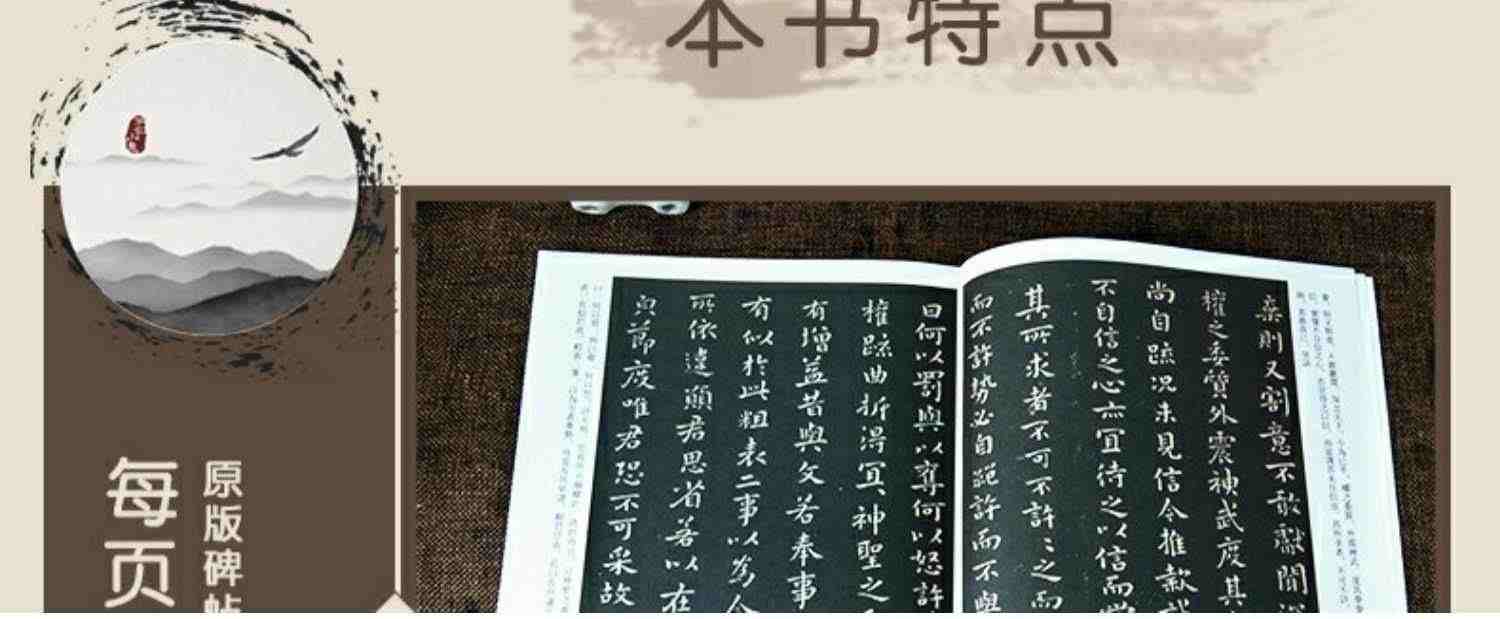 本书特点
原版碑帖
每页
棄則又割意不敢獻聞
權之委質外震神武度其
尚自疏况未見信今推款誠
不自信之心亦宜待之以信而當
其所求者不可不許〻之而
而不許勢必自絕許而不與
曰何以罰與以奪何以怒許
權疏曲折得宜〻神聖之
有增益昔與文若奉事
有似於此粗表二事以為今
所依違願君思省若以在
皃節度唯君恐不可采故